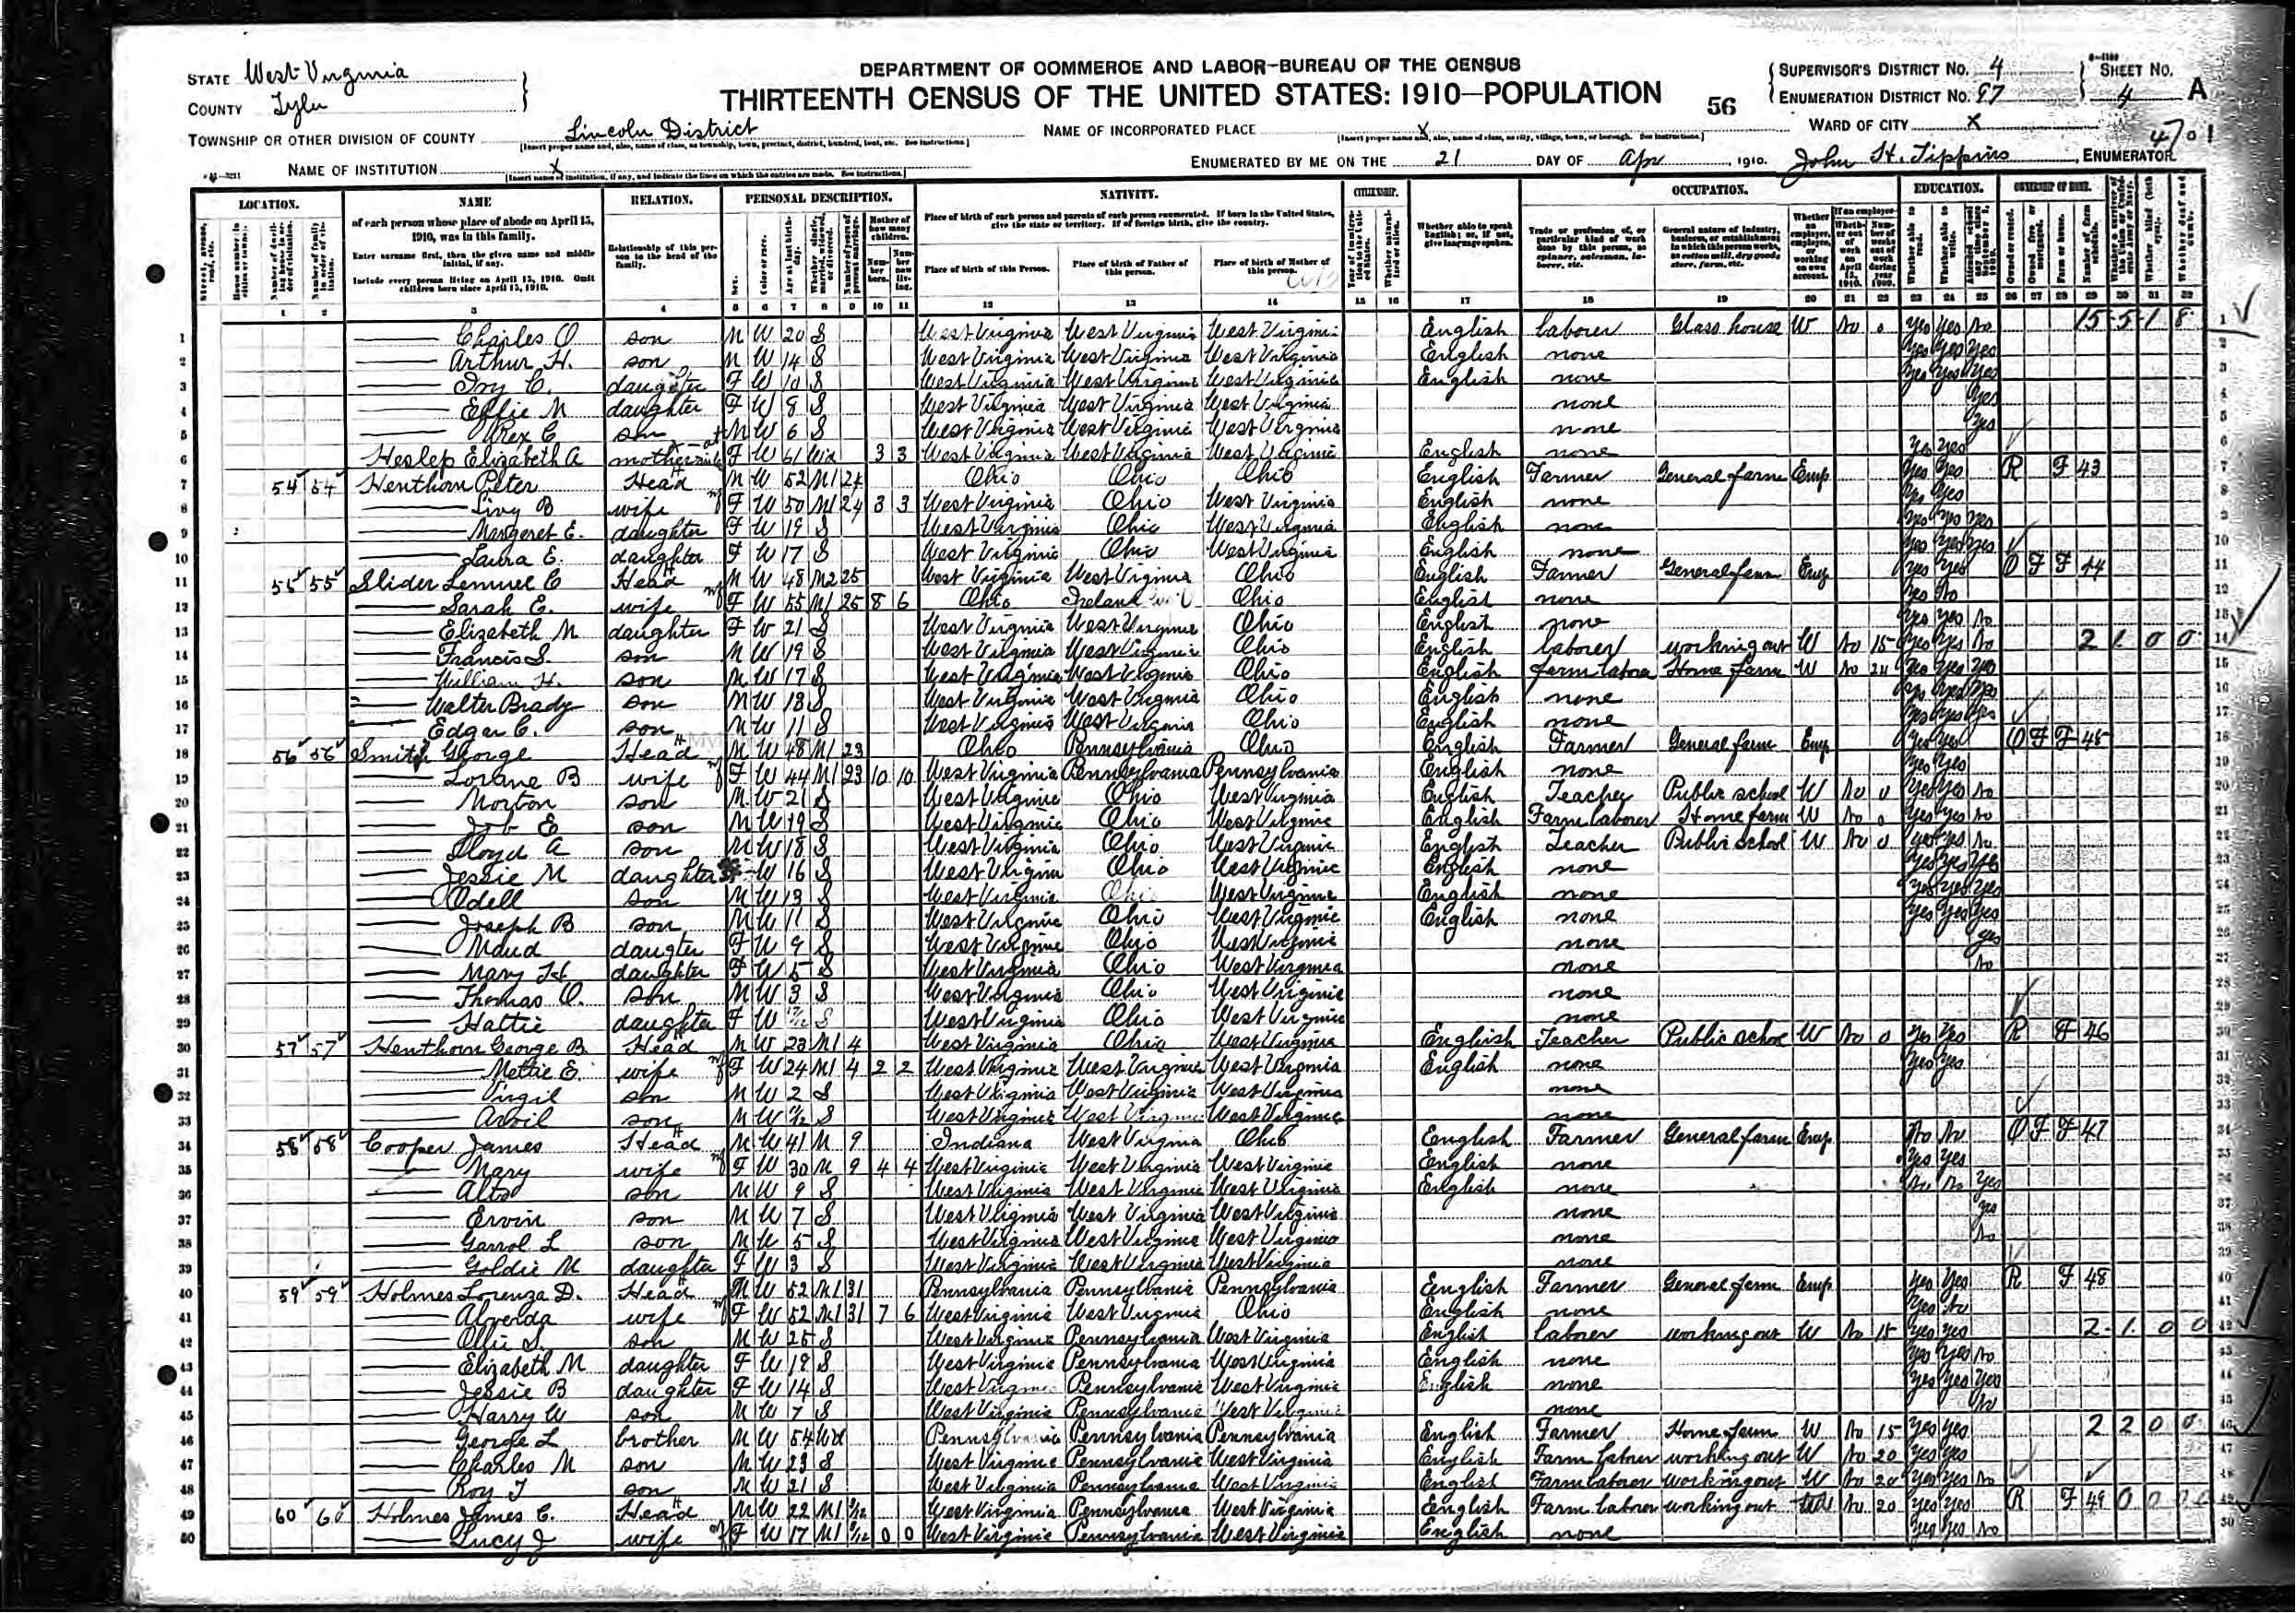 DEPARTMENT OF COMMERCE AND LABOR-BUREAU OF THE CENSUS
THIRTEENTH CENSUS OF THE UNITED STATES: 1910-POPULATION
STATE West Virginia
COUNTY Tyler
TOWNSHIP OR OTHER DIVISION OF COUNTY Lincoln District
NAME OF INSTITUTION X
NAME OF INCORPORATED PLACE X
ENUMERATED BY ME ON THE 21 DAY OF Apr, 1910. John H. Tippins, ENUMERATOR
56
SUPERVISOR'S DISTRICT No. 4
ENUMERATION DISTRICT No. 97
SHEET No. 4 A
WARD OF CITY X
LOCATION. NAME RELATION. PERSONAL DESCRIPTION. NATIVITY. CITIZENSHIP. OCCUPATION. EDUCATION. OWNERSHIP OF HOME.
of each person whose place of abode on April 15, 1910, was in this family.
Enter surname first, then the given name and middle initial, if any.
Include every person living on April 15, 1910. Omit children born since April 15, 1910.
Relationship of this person to the head of the family.
Place of birth of each person and parents of each person enumerated. If born in the United States, give the state or territory. If of foreign birth, give the country.
Place of birth of this Person. Place of birth of Father of this person. Place of birth of Mother of this person.
Whether able to speak English; or, if not, give language spoken.
1 Charles O son M W 20 S West Virginia West Virginia West Virginia English laborer Glass house W No 0 Yes Yes No 15-5-1 8
2 Arthur H. son M W 14 S West Virginia West Virginia West Virginia English none Yes Yes Yes
3 Ivy C. daughter F W 10 S West Virginia West Virginia West Virginia English none Yes Yes Yes
4 Effie M daughter F W 8 S West Virginia West Virginia West Virginia none Yes
5 Rex C son M W 6 S West Virginia West Virginia West Virginia none Yes
6 Heslep Elizabeth A F W 61 Wd 3 3 West Virginia West Virginia West Virginia English none Yes Yes
7 54 54 Henthorn Peter Head M W 52 M1 24 Ohio Ohio Ohio English Farmer General farm Emp Yes Yes R F 43
8 Livy B wife F W 50 M1 24 3 3 West Virginia Ohio West Virginia English none Yes Yes
9 Margaret E. daughter F W 19 S West Virginia Ohio West Virginia English none Yes Yes Yes
10 Laura E. daughter F W 17 S West Virginia Ohio West Virginia English none Yes Yes Yes
11 55 55 Slider Lemuel C Head M W 48 M2 25 West Virginia West Virginia Ohio English Farmer General farm Emp Yes Yes O F F 44
12 Sarah E. wife F W 55 M1 25 8 6 Ohio Ireland Ohio English none Yes No
13 Elizabeth M daughter F W 21 S West Virginia West Virginia Ohio English none Yes Yes No
14 Francis S. son M W 19 S West Virginia West Virginia Ohio English laborer working out W No 15 Yes Yes No 2 1 0 0
15 William H. son M W 17 S West Virginia West Virginia Ohio English farm laborer Home farm W No 24 Yes Yes Yes
16 Walter Brady son M W 13 S West Virginia West Virginia Ohio English none Yes Yes Yes
17 Edgar C. son M W 11 S West Virginia West Virginia Ohio English none Yes Yes Yes
18 56 56 Smith George Head M W 48 M1 23 Ohio Pennsylvania Ohio English Farmer General farm Emp Yes Yes O F F 45
19 Lorane B wife F W 44 M1 23 10 10 West Virginia Pennsylvania Pennsylvania English none Yes Yes
20 Morton son M W 21 S West Virginia Ohio West Virginia English Teacher Public school W No 0 Yes Yes No
21 Job E son M W 19 S West Virginia Ohio West Virginia English Farm laborer Home farm W No 0 Yes Yes No
22 Lloyd A son M W 18 S West Virginia Ohio West Virginia English Teacher Public School W No 0 Yes Yes No
23 Jessie M daughter W 16 S West Virginia Ohio West Virginia English none Yes Yes Yes
24 Odell son M W 13 S West Virginia Ohio West Virginia English none Yes Yes Yes
25 Joseph B son M W 11 S West Virginia Ohio West Virginia English none Yes Yes Yes
26 Maud daugter F W 9 S West Virginia Ohio West Virginia none Yes
27 Mary H daughter F W 5 S West Virginia Ohio West Virginia none No
28 Thomas O. son M W 3 S West Virginia Ohio West Virginia none
29 Hattie daughter F W S West Virginia Ohio West Virginia none
30 57 57 Henthorn George B Head M W 23 M1 4 West Virginia Ohio West Virginia English Teacher Public school W No 0 Yes Yes R F 46
31 Mettie E. wife F W 24 M1 4 2 2 West Virginia West Virginia West Virginia English none Yes Yes
32 Virgil son M W 2 S West Virginia West Virginia West Virginia none
33 Arvil son M W S West Virginia West Virginia West Virginia none
34 58 58 Cooper James Head M W 41 M 9 Indiana West Virginia Ohio English Farmer General farm Emp No No O F F 47
35 Mary wife F W 30 M 9 4 4 West Virginia West Virginia West Virginia English none Yes Yes
36 Alto son M W 9 S West Virginia West Virginia West Virginia English none No No Yes
37 Ervin son M W 7 S West Virginia West Virginia West Virginia none Yes
38 Garrol L son M W 5 S West Virginia West Virginia West Virginia none No
39 Goldie M daughter F W 3 S West Virginia West Virginia West Virginia none
40 59 59 Holmes Lorenza D. Head M W 52 M1 31 Pennsylvania Pennsylvania Pennsylvania English Farmer General farm Emp Yes Yes R F 48
41 Alverda wife F W 52 M1 31 7 6 West Virginia West Virginia Ohio English none Yes No
42 Ollie S. son M W 25 S West Virginia Pennsylvania West Virginia English laborer working out W No 15 Yes Yes 2 1 0 0
43 Elizabeth M daughter F W 18 S West Virginia Pennsylvania West Virginia English none Yes Yes No
44 Jessie B daughter F W 14 S West Virginia Pennsylvania West Virginia English none Yes Yes Yes
45 Harry W son M W 7 S West Virginia Pennsylvania West Virginia none No
46 George L brother M W 54 Wd Pennsylvania Pennsylvania Pennsylvania English Farmer Home farm W No 15 Yes Yes 2 2 0 0
47 Charles M son M W 23 S West Virginia Pennsylvania West Virginia English Farm laborer working out W No 20 Yes Yes
48 Roy T son M W 21 S West Virginia Pennsylvania West Virginia English Farm laborer working out W No 20 Yes Yes No
49 60 60 Holmes James C. Head M W 22 M1 West Virginia Pennsylvania West Virginia English Farm laborer working out No 20 Yes Yes R F 49 0 0 0 0
50 Lucy J wife F W 17 M1 0 0 West Virginia Pennsylvania West Virginia English none Yes Yes No